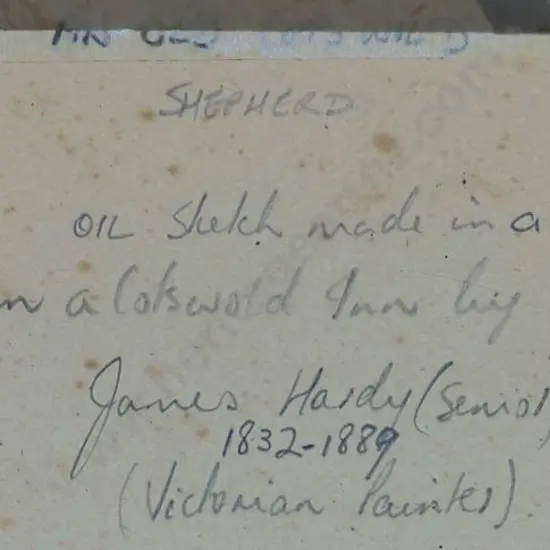 AN OLD COTSWOLD
SHEPHERD
OIL Sketch made in a
in a Cotswold Inn by
James Hardy (Senior)
1832-1889
(Victorian Painter)